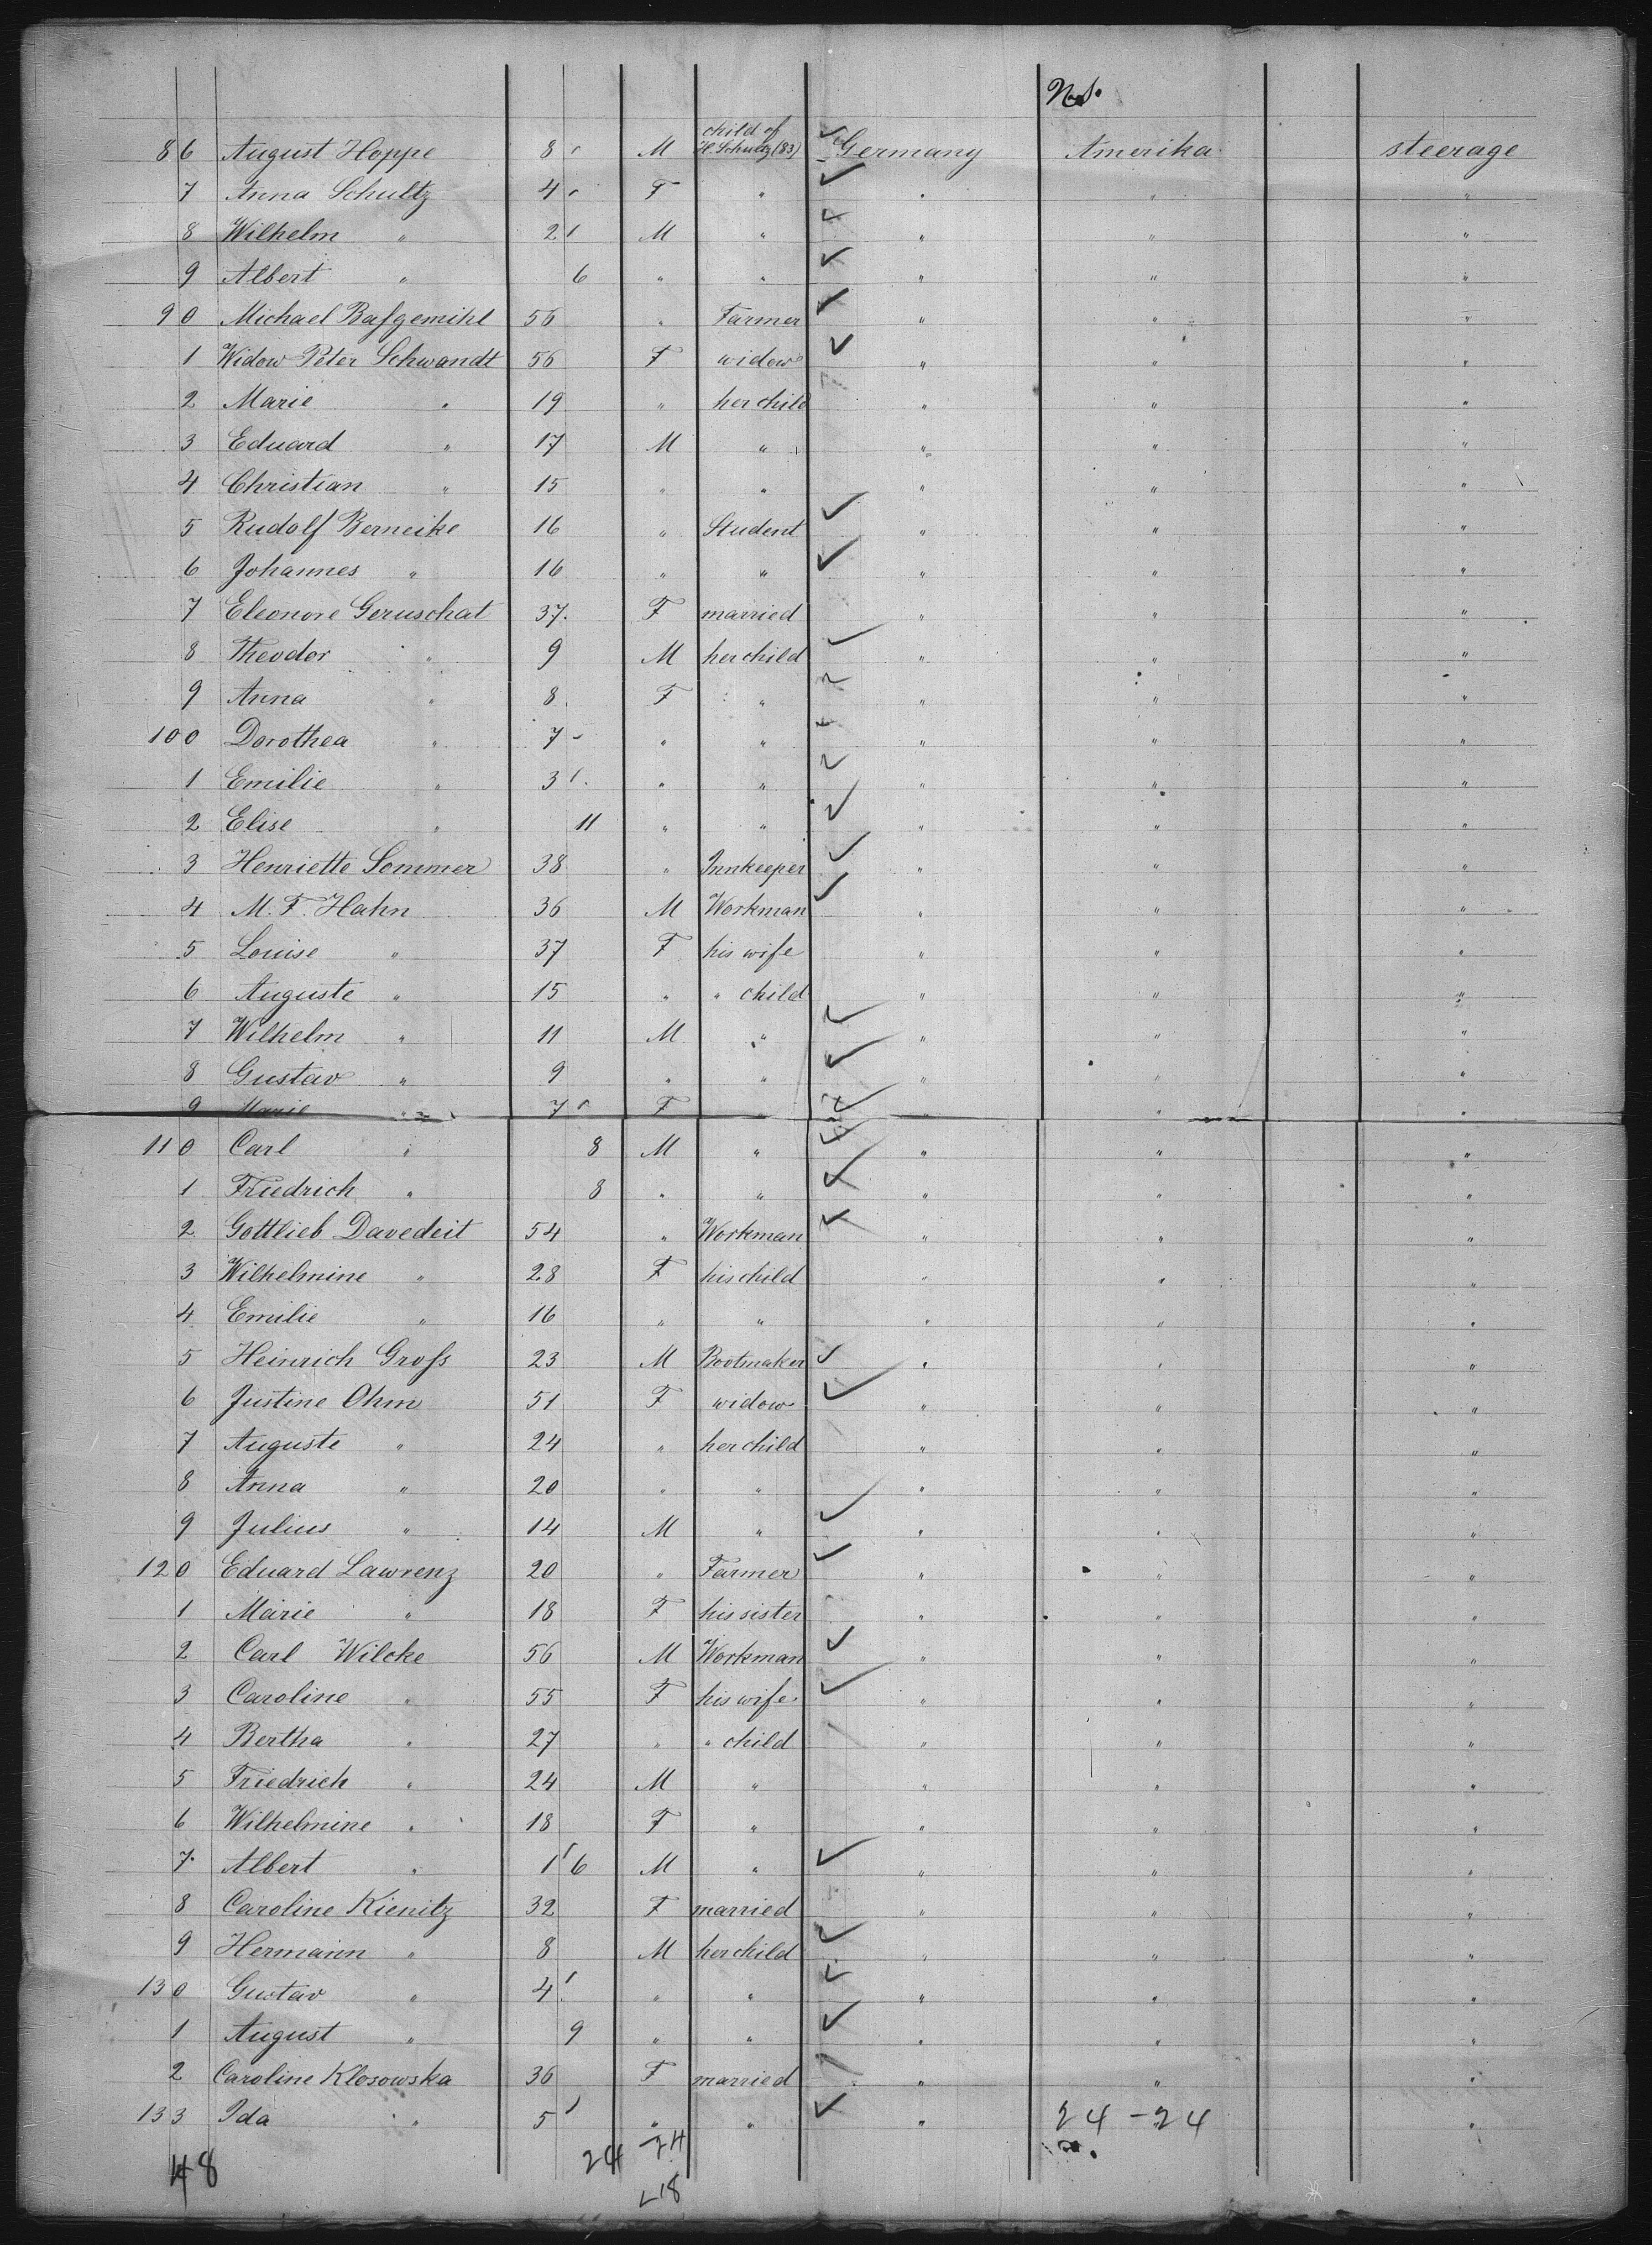 U.S.
86 August Hoppe 8 M child of H. Schultz (83) Germany Amerika steerage
7 Anna Schultz 4 F " " " "
8 Wilhelm " 2 M " " " "
9 Albert " 6 " " " " "
90 Michael Baſgemihl 56 " Farmer " " "
1 Widow Peter Schwandt 56 F widow " " "
2 Marie " 19 " her child " " "
3 Eduard " 17 M " " " "
4 Christian " 15 " " " " "
5 Rudolf Berneike 16 " Student " " "
6 Johannes " 16 " " " " "
7 Eleonore Geruschat 37 F married " " "
8 Theodor " 9 M her child " " "
9 Anna " 8 F " " " "
100 Dorothea " 7 " " " " "
1 Emilie " 3 " " " " "
2 Elise " 11 " " " " "
3 Henriette Sommer 38 " Innkeeper " " "
4 M. F. Hahn 36 M Workman " " "
5 Louise " 37 F his wife " " "
6 Auguste " 15 " " child " " "
7 Wilhelm " 11 M " " " "
8 Gustav " 9 " " " " "
9 Marie " 7 F " " " "
110 Carl " 8 M " " " "
1 Friedrich " 8 " " " " "
2 Gottlieb Davedeit 54 " Workman " " "
3 Wilhelmine " 28 F his child " " "
4 Emilie " 16 " " " " "
5 Heinrich Groſs 23 M Bootmaker " " "
6 Justine Ohm 51 F widow " " "
7 Auguste " 24 " her child " " "
8 Anna " 20 " " " " "
9 Julius " 14 M " " " "
120 Eduard Lawrenz 20 " Farmer " " "
1 Marie " 18 F his sister " " "
2 Carl Wilcke 56 M Workman " " "
3 Caroline " 55 F his wife " " "
4 Bertha " 27 " " child " " "
5 Friedrich " 24 M " " " "
6 Wilhelmine " 18 F " " " "
7 Albert " 1 6 M " " " "
8 Caroline Kienitz 32 F married " " "
9 Hermann " 8 M her child " " "
130 Gustav " 4 " " " " "
1 August " 9 " " " " "
2 Caroline Klosowska 36 F married " " "
133 Ida " 5 " " " 24-24 "
48 24 - 24